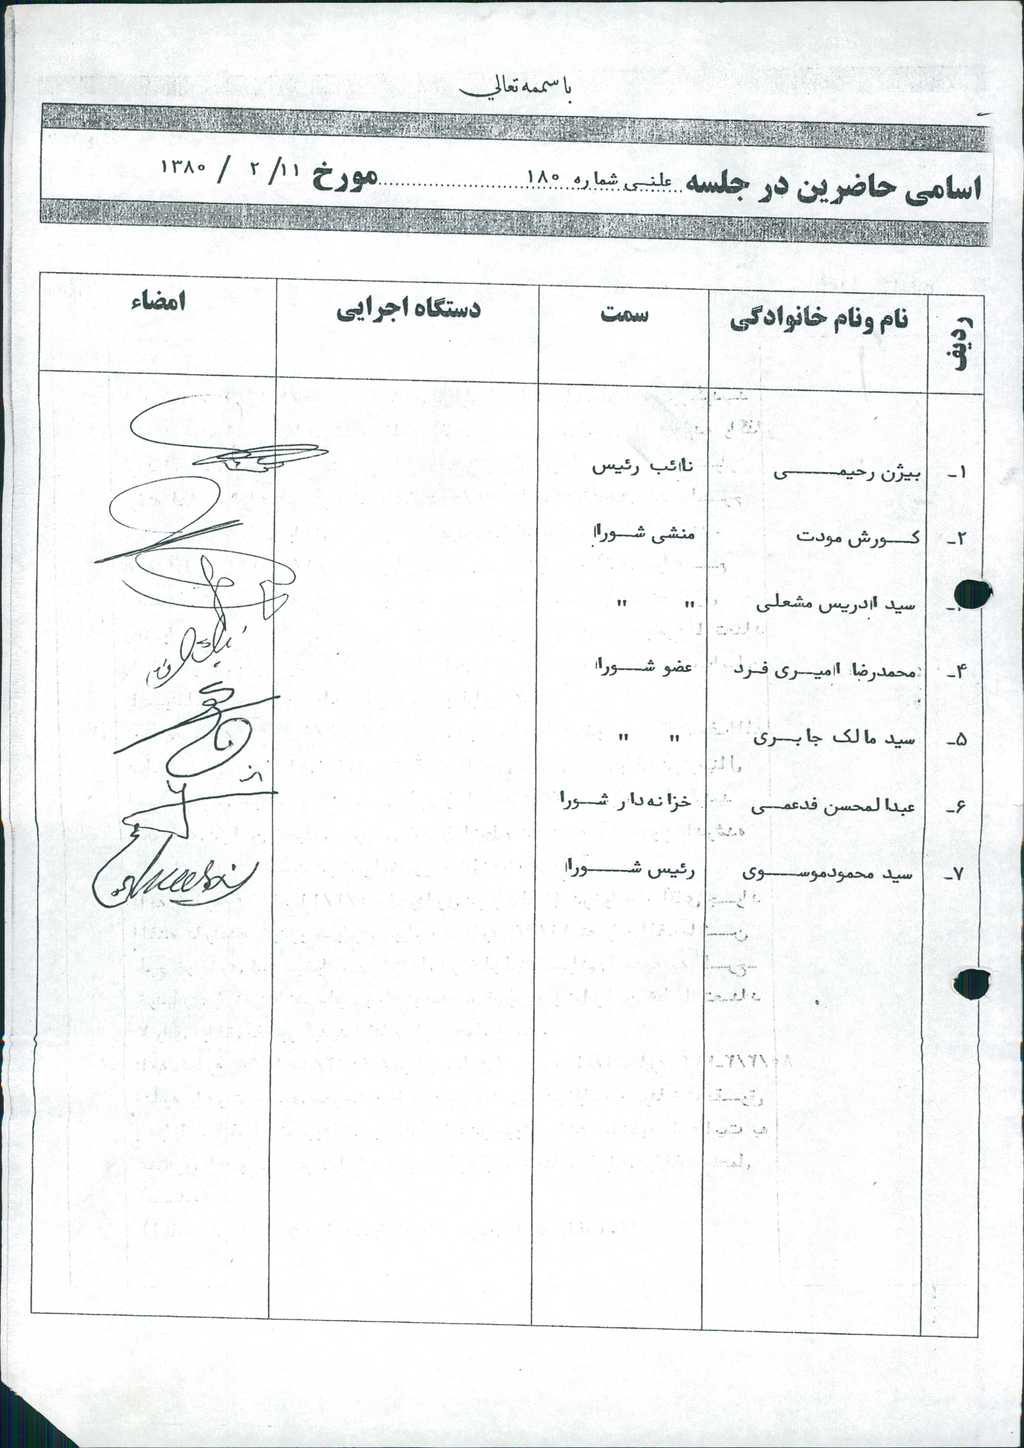 باسمه تعالي
اسامی حاضرین در جلسه علنی شماره ۱۸۰ مورخ ۱۳۸۰ / ۲ /۱۱
ردیف نام ونام خانوادگی سمت دستگاه اجرایی امضاء
۱ـ بیژن رحیمی نائب رئیس
۲ـ کورش مودت منشی شورا
سید ادریس مشعلی " "
۴ـ محمدرضا امیری فرد عضو شورا
۵ـ سید مالک جابری " "
۶ـ عبدالمحسن قدعمی خزانه دار شورا
۷ـ سید محمودموسوی رئیس شورا